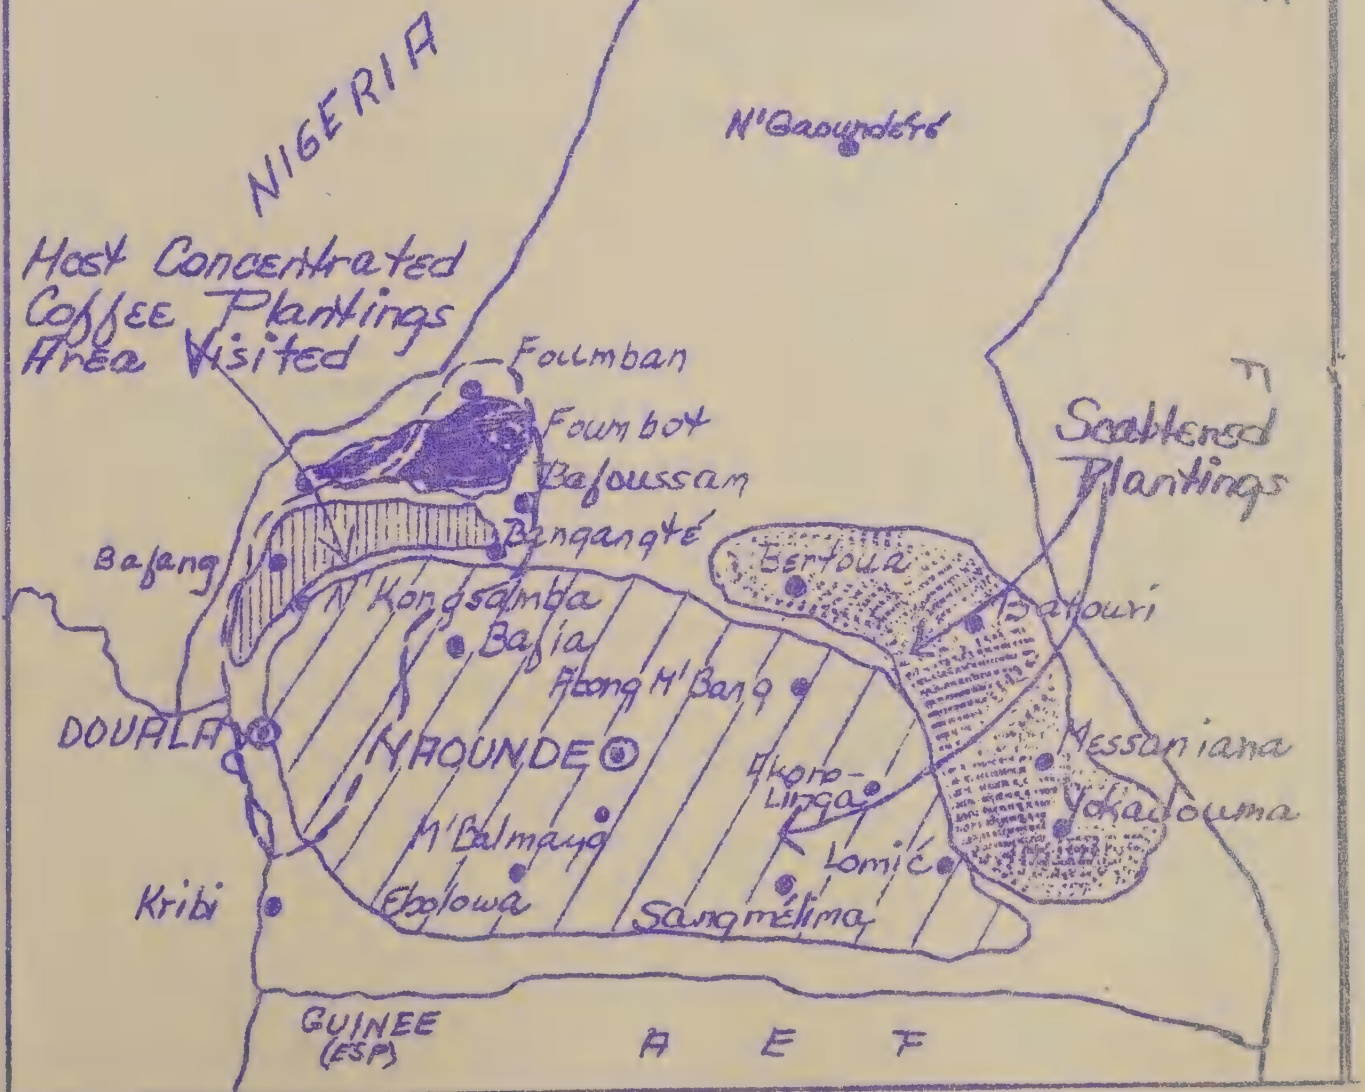 NIGERIA
N'Gaoundéré
Most Concentrated
Coffee Plantings
Area Visited
Foumban
Foumbot
Bafoussam
Bangangté
Bafang
N'Kongsamba
Bafia
Bertoua
Batouri
Scattered
Plantings
Abong M'Bang
DOUALA
YAOUNDE
Akono-
Linga
Messaniana
Yokadouma
M'Balmayo
Lomié
Kribi
Ebolowa
Sangmélima
GUINEE
(ESP)
A E F